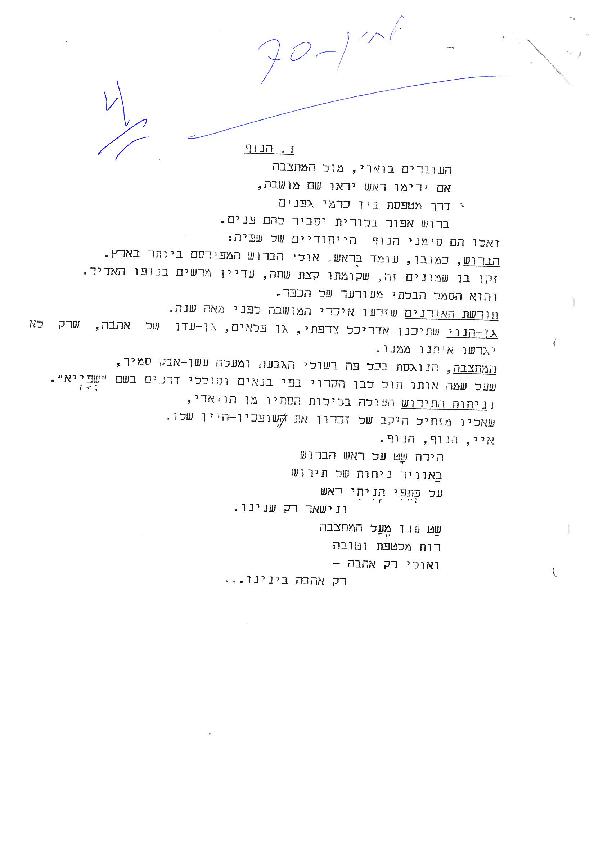 70
ז. הנוף
העוברים בואדי, מול המחצבה
אם ירימו ראש יראו שם מושבה,
דרך מטפסת בין כרמי גפנים
ברוש אפור בלורית יסביר להם פנים.
ואלו הם סימני הנוף הייחודיים של שפיה:
הברוש, כמובן, עומד בראש. אולי הברוש המפורסם ביותר בארץ.
זקן בן שמונים זה, שקומתו קצת שחה, עדיין מרשים בנופו האדיר.
והוא הסמל הבלתי מעורער של הכפר.
חורשת האורנים שזרעו איכרי המושבה לפני מאה שנה.
גן-הנוי שתיכנן אדריכל צרפתי, גן פלאים, גן-עדן של אהבה, שרק לא
יגרשו אותנו ממנו.
המחצבה, הנוגסת בכל פה בשולי הגבעה ומעלה עשן-אבק סמיך,
שעל שמה אותו חול לבן הקרוי בפי בנאים וסוללי דרכים בשם "שפייא".
וניחוח התירוש העולה בלילות הסתיו מן הואדי,
שאליו מזחיל היקב של זכרון את השופכין-היין שלו.
איי, הנוף, הנוף.
הירח שט על ראש הברוש
באוויר ניחוח של תירוש
על כתפי הניחי ראש
ונישאר רק שנינו.
שט ענן מעל המחצבה
רוח מלטפת וטובה
ואולי רק אהבה –
רק אהבה בינינו...